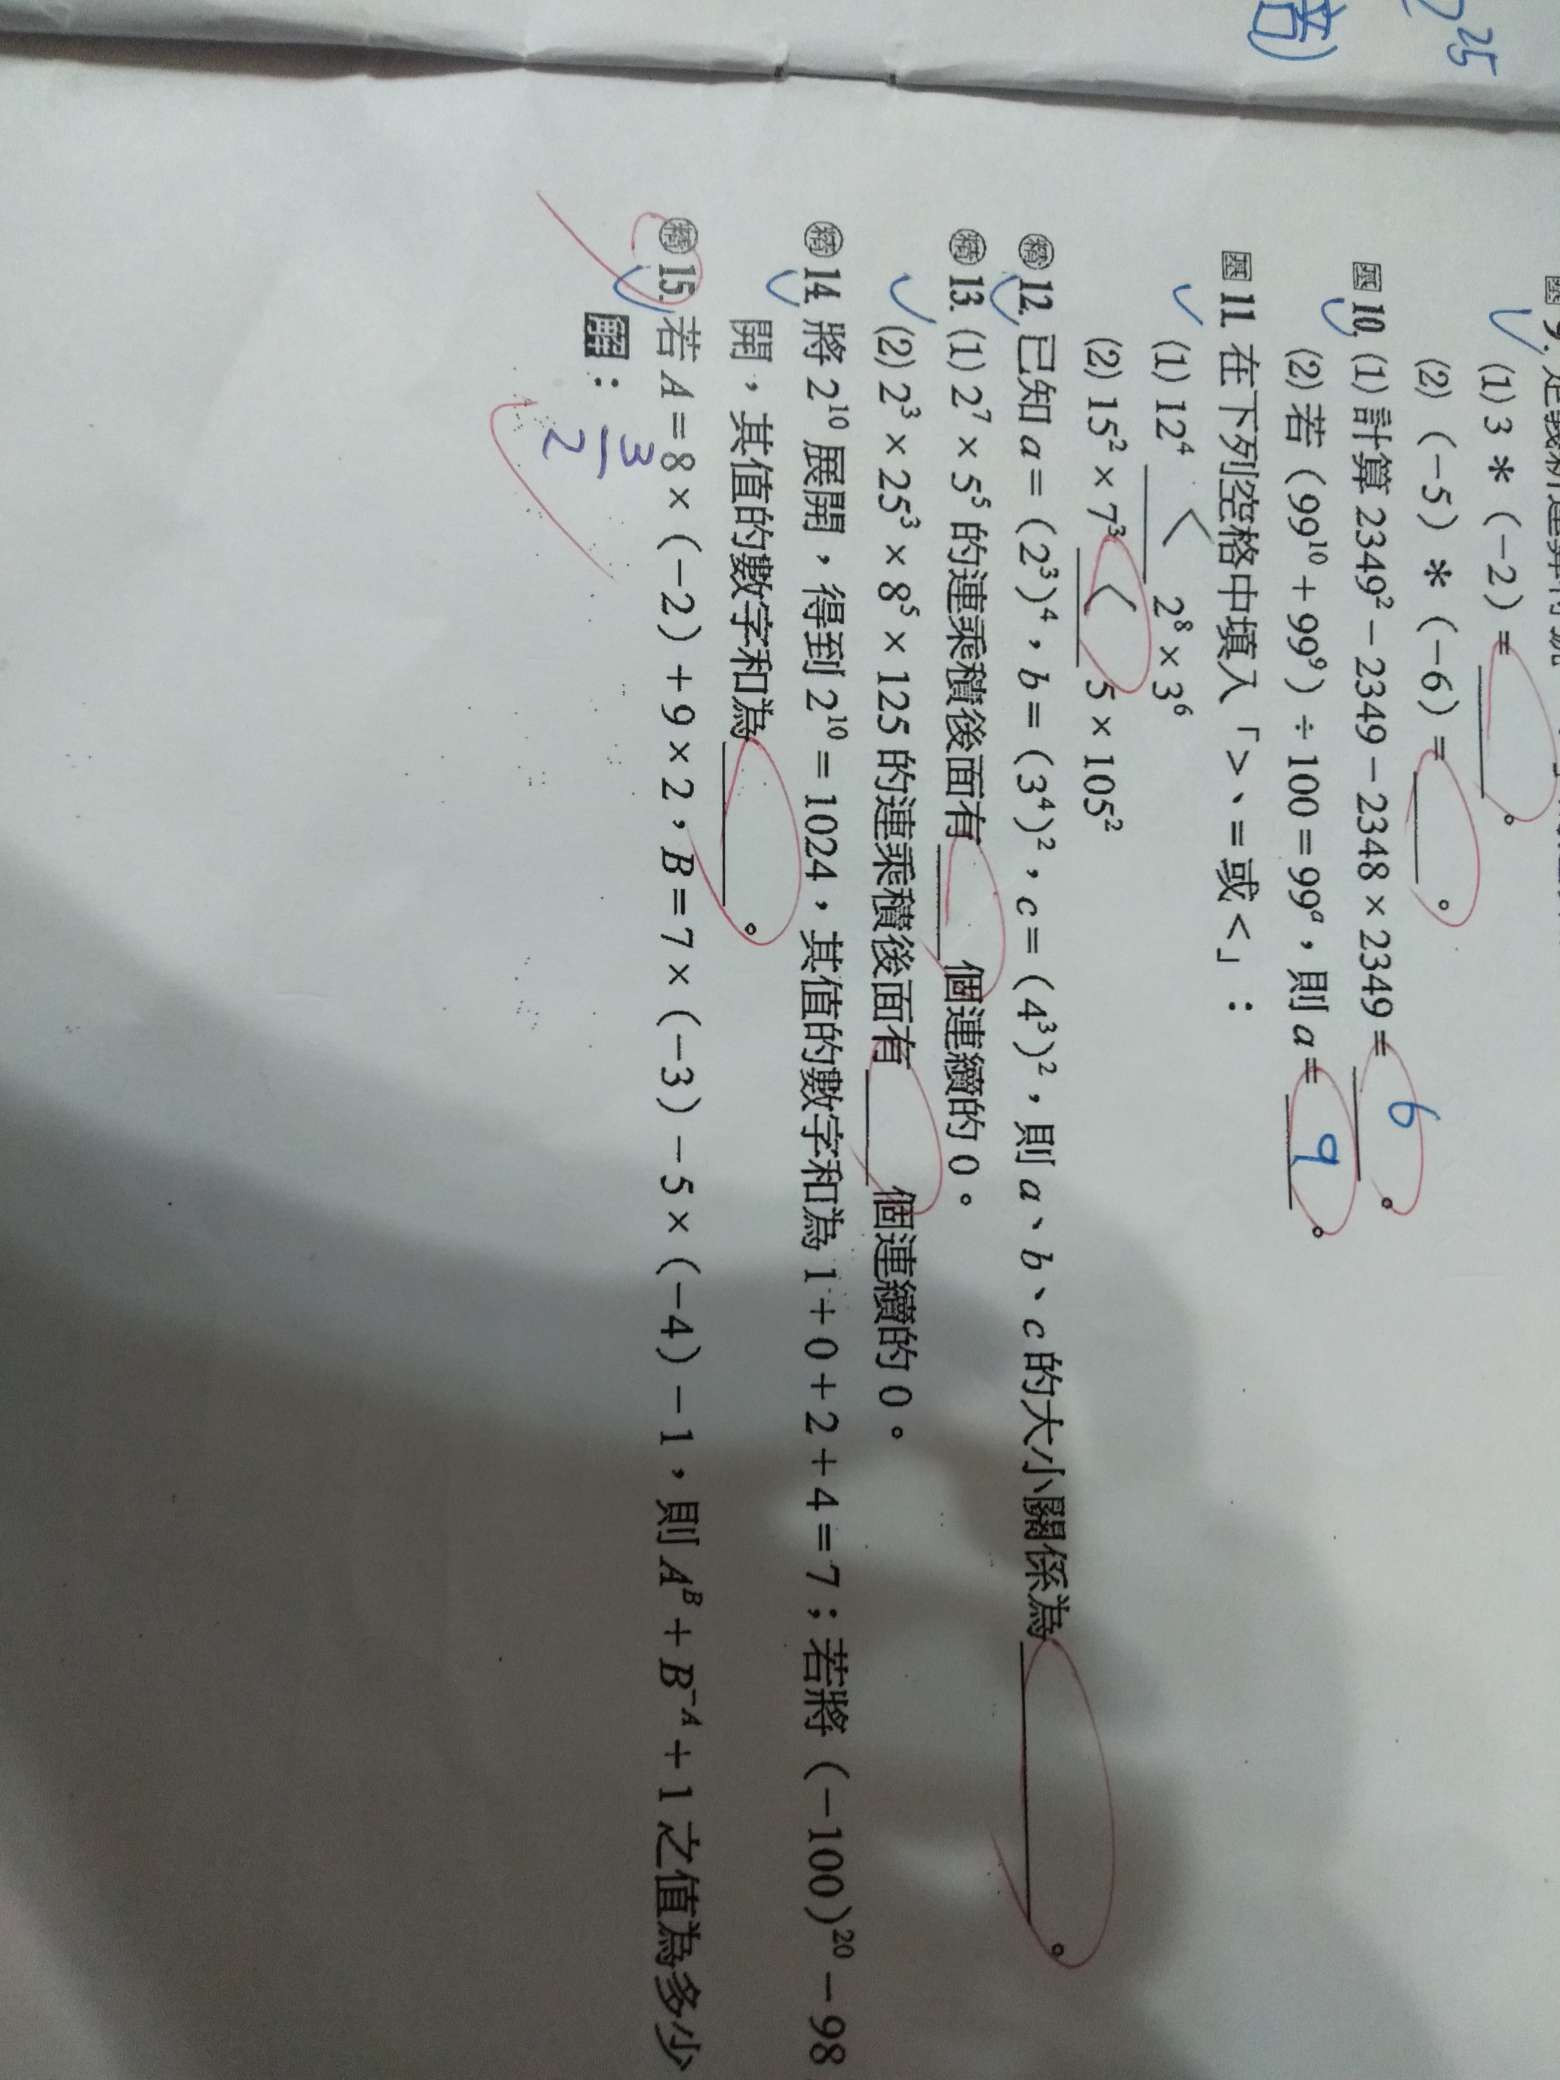 25
(1) 3 * (-2) = 。
(2) (-5) * (-6) = 。
10. (1) 計算 2349² - 2349 - 2348 × 2349 = 6 。
(2) 若 (99¹⁰ + 99⁹) ÷ 100 = 99ᵃ,則 a = 9 。
11. 在下列空格中填入「>、= 或 <」:
(1) 12⁴ < 2⁸ × 3⁶
(2) 15² × 7³ < 5 × 105²
精 12. 已知 a = (2³)⁴,b = (3⁴)²,c = (4³)²,則 a、b、c 的大小關係為 。
精 13. (1) 2⁷ × 5⁵ 的連乘積後面有 個連續的 0。
(2) 2³ × 25³ × 8⁵ × 125 的連乘積後面有 個連續的 0。
精 14. 將 2¹⁰ 展開,得到 2¹⁰ = 1024,其值的數字和為 1 + 0 + 2 + 4 = 7;若將 (-100)²⁰ - 98
開,其值的數字和為 。
精 15. 若 A = 8 × (-2) + 9 × 2,B = 7 × (-3) - 5 × (-4) - 1,則 Aᴮ + B⁻ᴬ + 1 之值為多少
解: 3/2